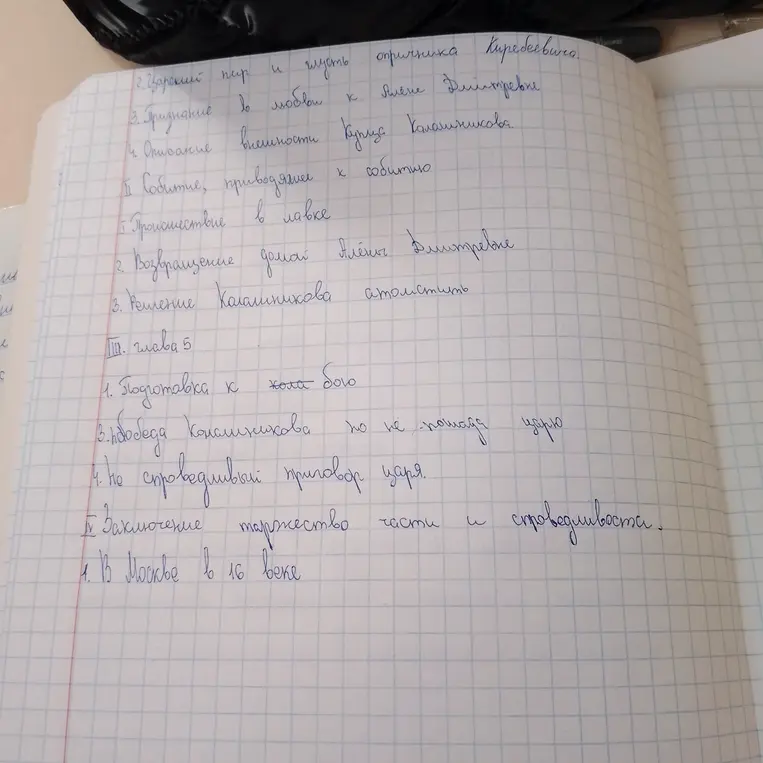 2. Царский пир и грусть опричника Киребеевича.
3. Признание в любви к Алене Дмитревне
4. Описание внешности Купца Калашникова
II Событие, приводящие к событию
1. Происшествие в лавке
2. Возвращение домой Алёны Дмитревне
3. Решение Калашникова атомстить
III. глава 5
1. Подготовка к бою
3. Победа Калашникова но не пощада царю
4. Не спроведливый приговор царя.
IV Заключение таржество части и спроведливоста.
1. В Москве в 16 веке